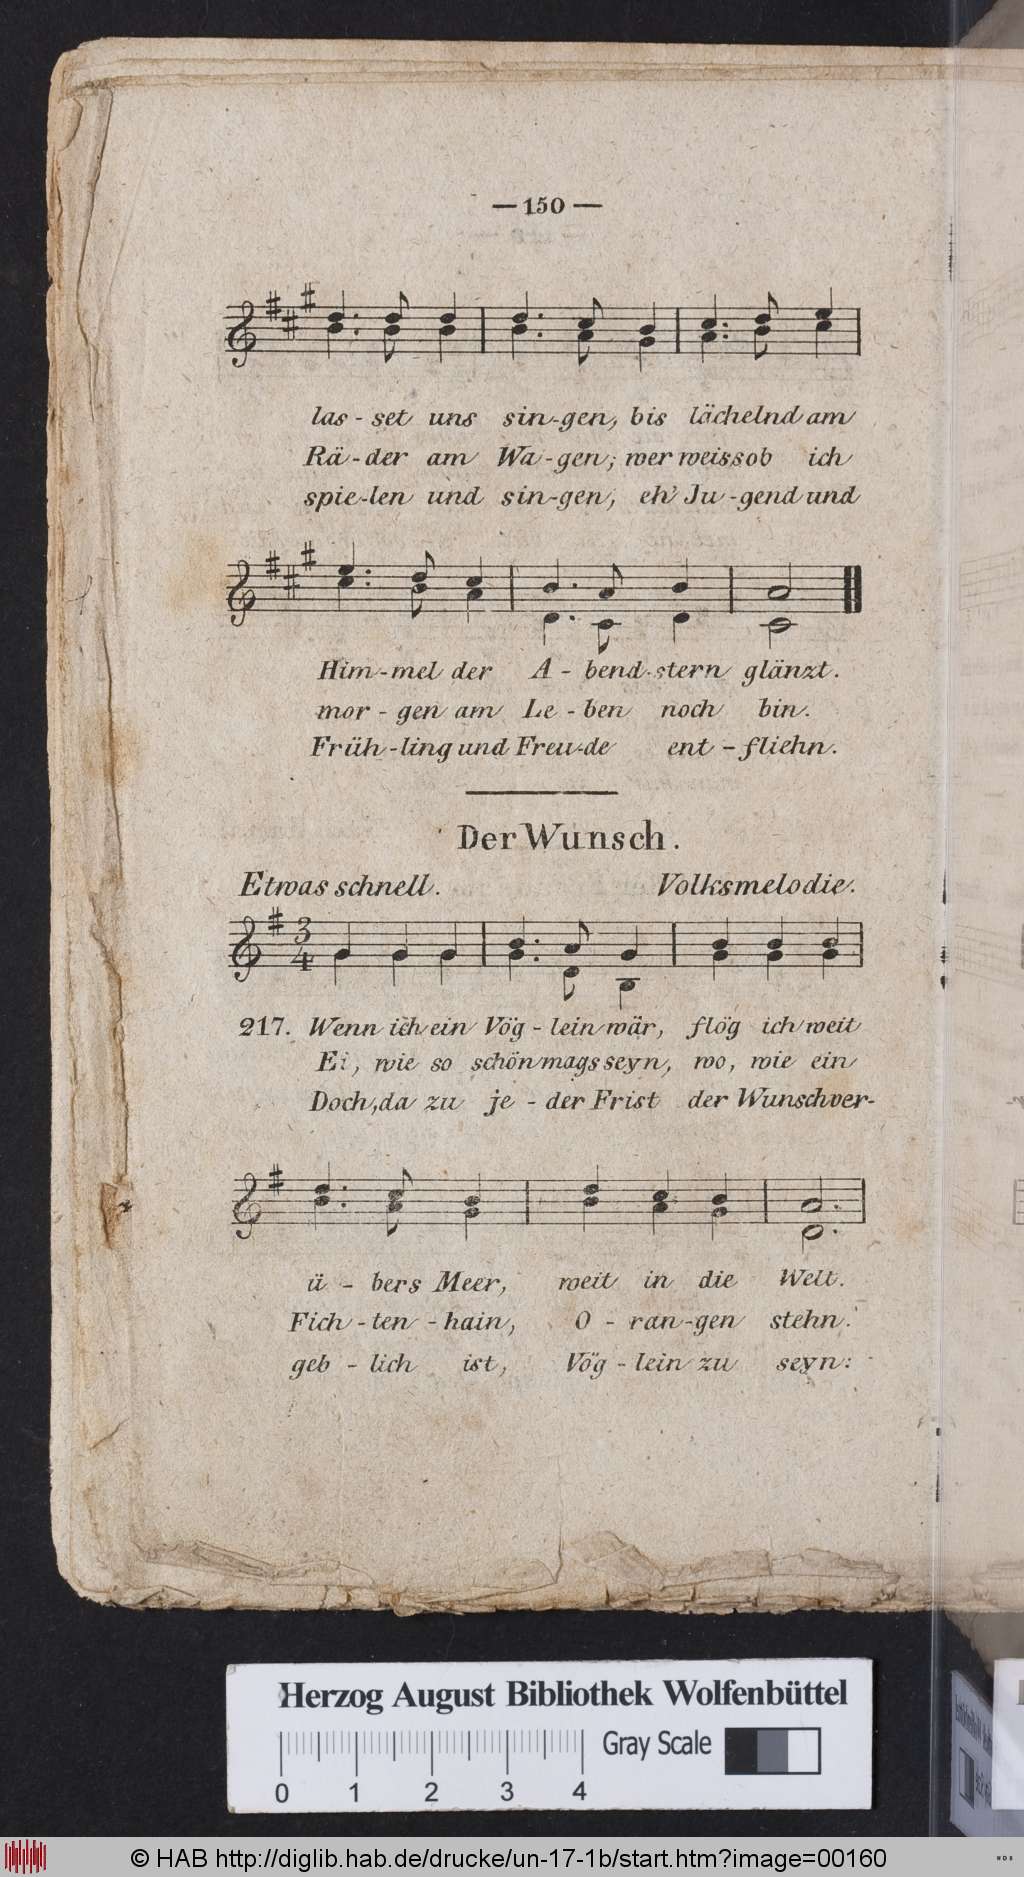 — 150 —
las - set uns sin-gen, bis lächelnd am
Rä-der am Wa-gen; wer weiss ob ich
spie-len und sin-gen, eh' Ju-gend und
Him-mel der A - bend-stern glänzt.
mor - gen am Le - ben noch bin.
Früh-ling und Freu-de ent - fliehn.
Der Wunsch.
Etwas schnell. Volksmelodie.
3
4
217. Wenn ich ein Vög - lein wär, flög ich weit
Ei, wie so schön mags seyn, wo, wie ein
Doch, da zu je - der Frist der Wunsch ver-
ü - bers Meer, weit in die Welt.
Fich - ten - hain, O - ran-gen stehn.
geb - lich ist, Vög - lein zu seyn:
Herzog August Bibliothek Wolfenbüttel
Gray Scale
0 1 2 3 4
© HAB http://diglib.hab.de/drucke/un-17-1b/start.htm?image=00160